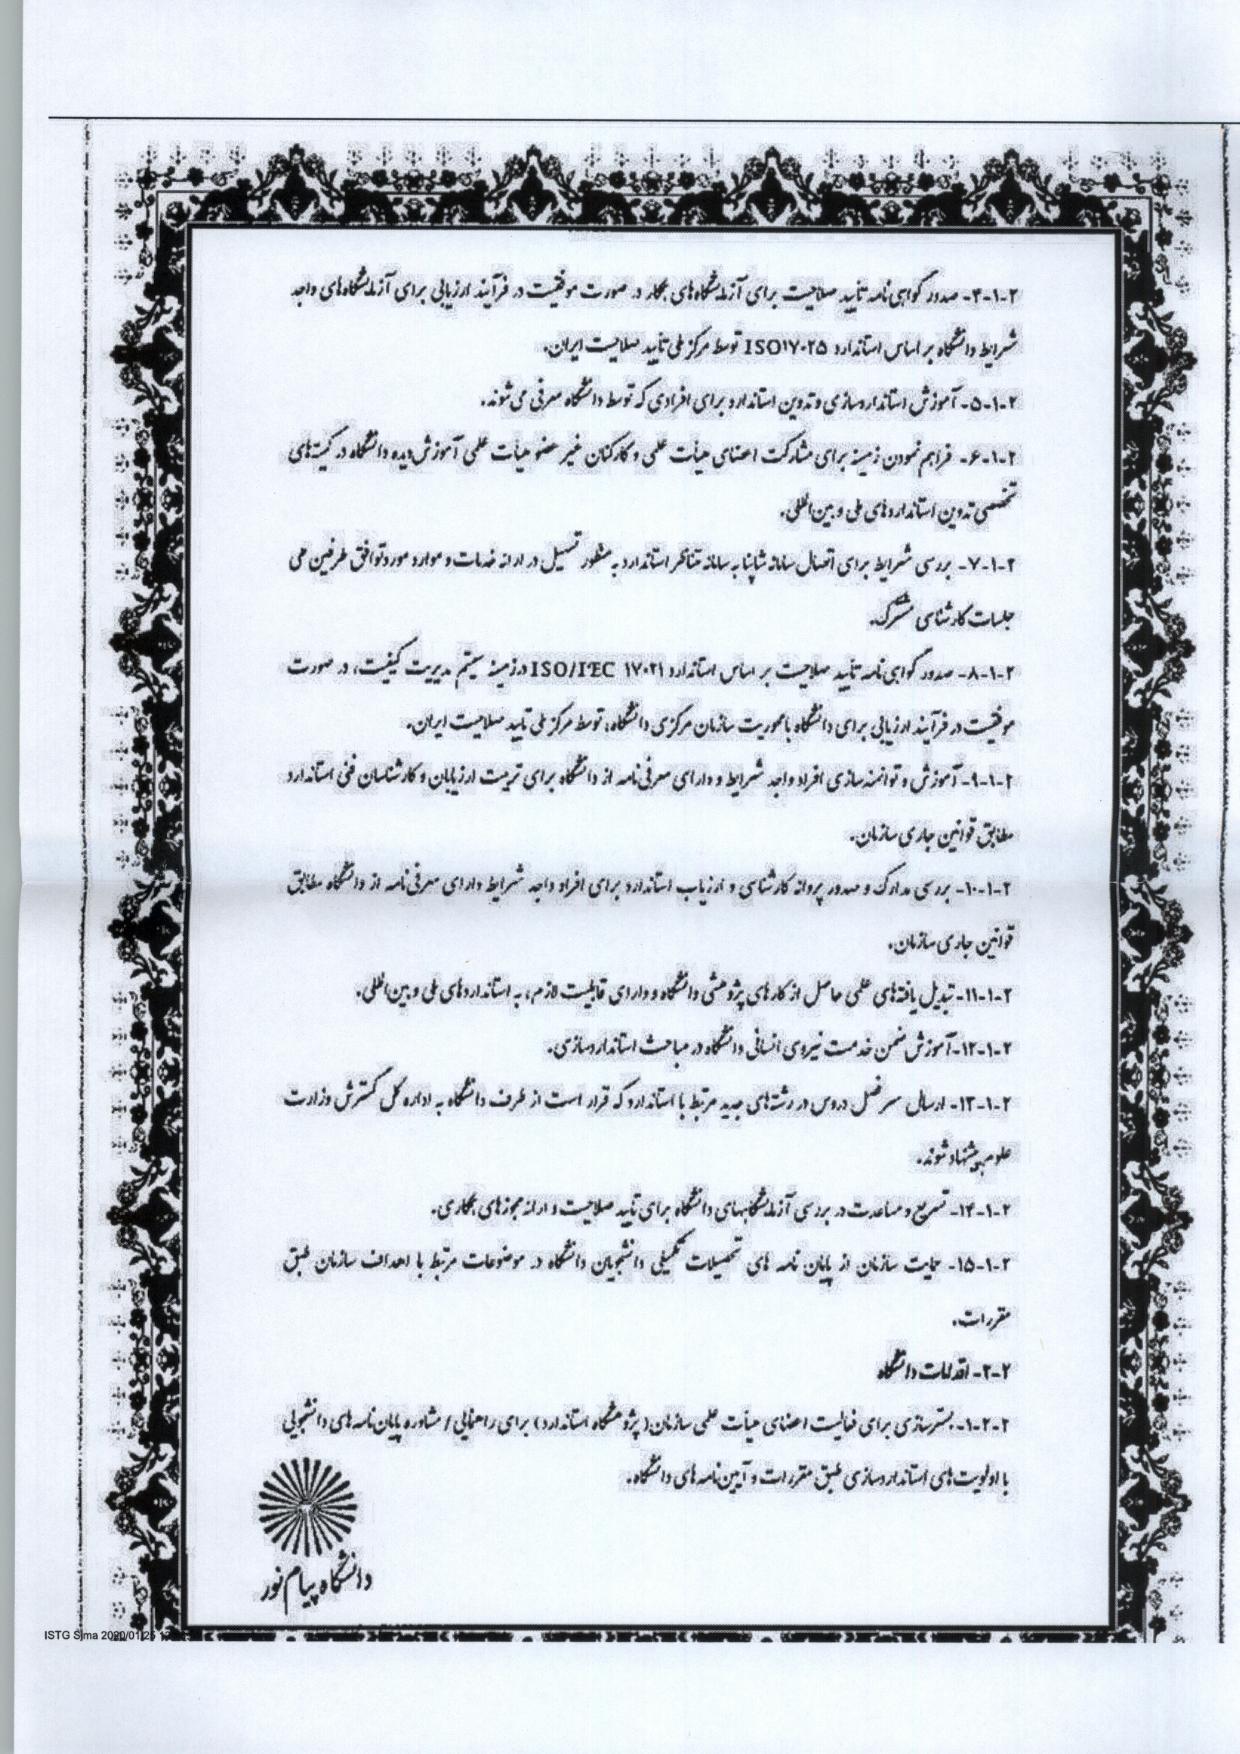 ۴-۱-۲- صدور گواهی‌نامه تأیید صلاحیت برای آزمایشگاه‌های همکار در صورت موفقیت در فرآیند ارزیابی برای آزمایشگاه‌های واجد
شرایط دانشگاه بر اساس استاندارد ISO۱۷۰۲۵ توسط مرکز ملی تأیید صلاحیت ایران.
۵-۱-۲- آموزش استانداردسازی و تدوین استاندارد برای افرادی که توسط دانشگاه معرفی می‌شوند.
۶-۱-۲- فراهم نمودن زمینه برای مشارکت اعضای هیأت علمی و کارکنان غیر عضو هیأت علمی آموزش‌دیده دانشگاه در کمیته‌های
تخصصی تدوین استانداردهای ملی و بین‌المللی.
۷-۱-۲- بررسی شرایط برای اتصال سامانه شاپنا به سامانه متناظر استاندارد به منظور تسهیل در ارائه خدمات و موارد مورد توافق طرفین طی
جلسات کارشناسی مشترک.
۸-۱-۲- صدور گواهی‌نامه تأیید صلاحیت بر اساس استاندارد ISO/IEC ۱۷۰۲۱ در زمینه سیستم مدیریت کیفیت، در صورت
موفقیت در فرآیند ارزیابی برای دانشگاه با محوریت سازمان مرکزی دانشگاه، توسط مرکز ملی تأیید صلاحیت ایران.
۹-۱-۲- آموزش و توانمندسازی افراد واجد شرایط و دارای معرفی‌نامه از دانشگاه برای تربیت ارزیابان و کارشناسان فنی استاندارد
مطابق قوانین جاری سازمان.
۱۰-۱-۲- بررسی مدارک و صدور پروانه کارشناسی و ارزیاب استاندارد برای افراد واجد شرایط دارای معرفی‌نامه از دانشگاه مطابق
قوانین جاری سازمان.
۱۱-۱-۲- تبدیل یافته‌های علمی حاصل از کارهای پژوهشی دانشگاه و دارای قابلیت لازم، به استانداردهای ملی و بین‌المللی.
۱۲-۱-۲- آموزش ضمن خدمت نیروی انسانی دانشگاه در مباحث استانداردسازی.
۱۳-۱-۲- ارسال سرفصل دروس در رشته‌های جدید مرتبط با استاندارد که قرار است از طرف دانشگاه به اداره کل گسترش وزارت
علوم پیشنهاد شوند.
۱۴-۱-۲- تسریع و مساعدت در بررسی آزمایشگاههای دانشگاه برای تأیید صلاحیت و ارائه مجوزهای همکاری.
۱۵-۱-۲- حمایت سازمان از پایان نامه های تحصیلات تکمیلی دانشجویان دانشگاه در موضوعات مرتبط با اهداف سازمان طبق
مقررات.
۲-۲- اقدامات دانشگاه
۱-۲-۲- بسترسازی برای فعالیت اعضای هیأت علمی سازمان (پژوهشگاه استاندارد) برای راهنمایی / مشاوره پایان‌نامه‌های دانشجویی
با اولویت‌های استانداردسازی طبق مقررات و آیین‌نامه‌های دانشگاه.
دانشگاه پیام نور
ISTG Sima 2020/01/25